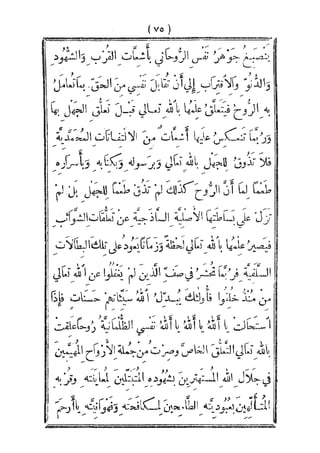 ( ٧٥ )
ينصبغ جوهر نفس الروحاني بأشعات القرب والشهود
والدنو والاقتراب إلي أن تقابل نفسي من الحق بما تعامل
به الروح فيتعلق علمها بالله تعالي قبل تعلق الجهل بها
وربما تنعكس عليها أشعات من الالتفاتات المحمدية
فلا تذوق للجهل بالله تعالي وبرسوله وبكتابه وبأسراره
طعما لما أن الروح كذلك لم تذق طعما للجهل بل لم
تزل علي بساطتها الأصلية الساذجية عن تعلقات الشوائب
فيصير علمها بالله تعالي لحظة وزمانا يعود على تلك البطالات
السلفية فربما تحشر في صفة الذين لم يغفلوا عن الله تعالي
من منذ خلقوا فأولئك يبدل الله سيئاتهم حسنات فإذا
استحالت يا الله يا الله يا الله نفسي الظلمانية روحا علقت
بالله تعالي التعلق الخاص وصرت من جملة الأرواح المهيمين
في جلال الله المستهترين بشهوده المتبتلين لمعاينته وقربه
المتألهين بعبوديته الطامحين لمكافحته وفهوانيته يا أرحم